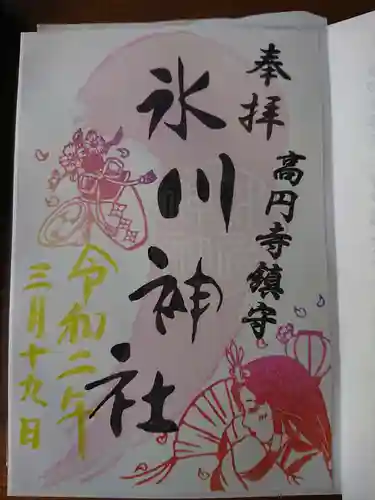 奉拝
高円寺鎮守
氷川神社
令和二年
三月十九日